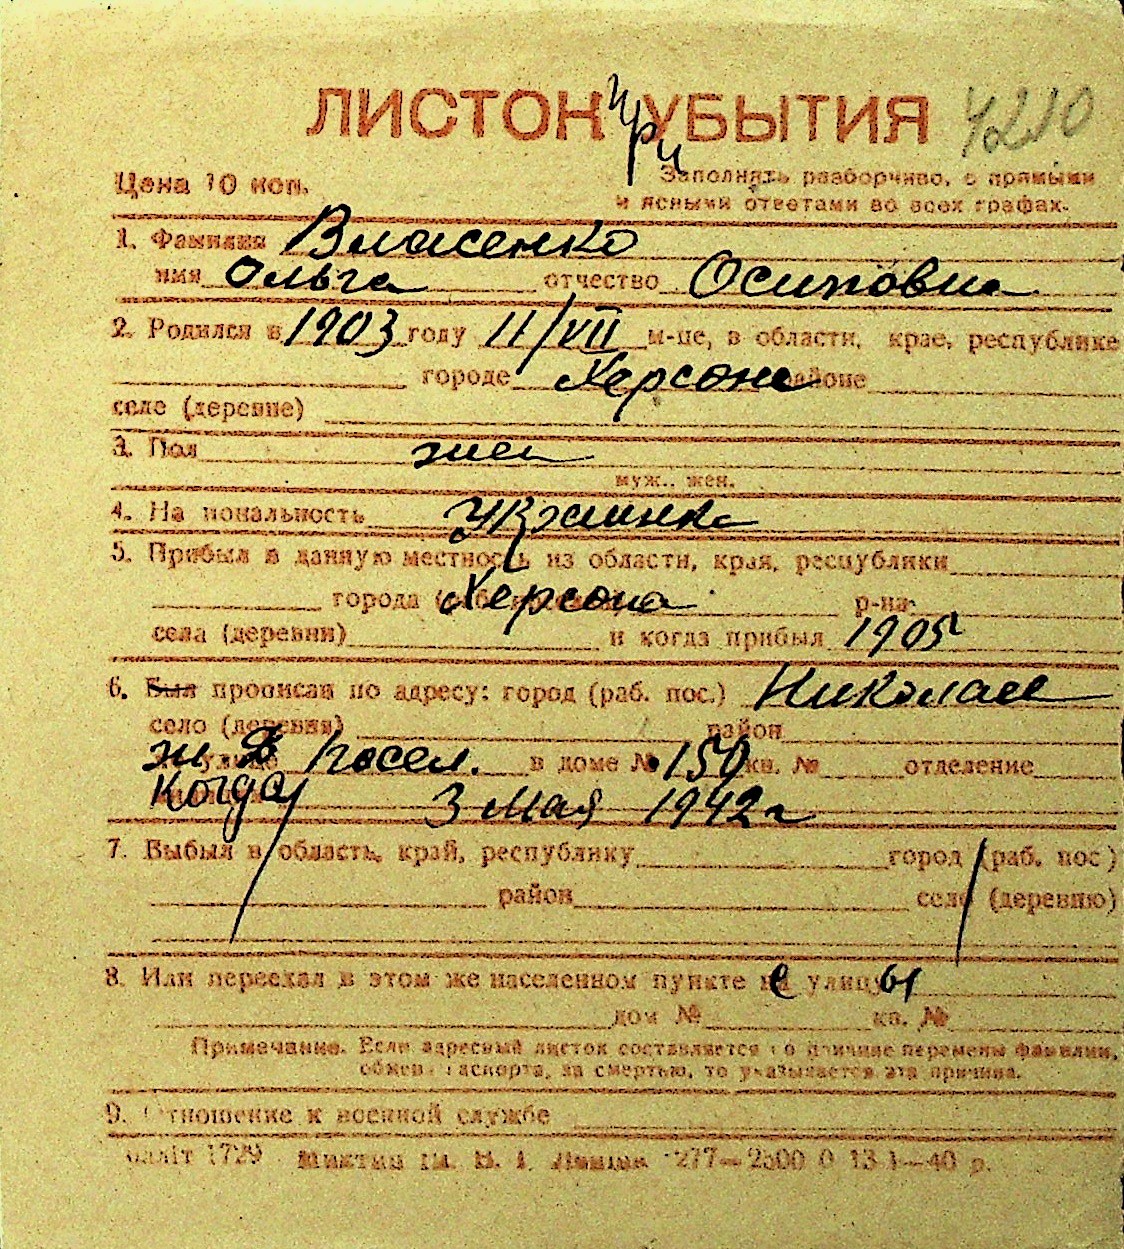 ЛИСТОК при УБЫТИЯ 4210
Цена 10 коп.
Заполнять разборчиво, с прямыми
и ясными ответами во всех графах.
1. Фамилия Власенко
имя Ольга отчество Осиповна
2. Родился в 1903 году 11/VII м-це, в области, крае, республике
городе Херсоне районе
селе (деревне)
3. Пол жен
муж., жен.
4. Национальность Украинка
5. Прибыл в данную местность из области, края, республики
города Херсона р-на
села (деревни) и когда прибыл 1905
6. Был прописан по адресу: город (раб. пос.) Николаев
село (деревня) район
посел. в доме № 150 кв. № отделение
Когда 3 Мая 1942 г
7. Выбыл в область, край, республику город (раб. пос)
район село (деревню)
8. Или переехал в этом же населенном пункте с улицы
дом № кв. №
Примечание. Если адресный листок составляется по причине перемены фамилии,
обмена паспорта, за смертью, то указывается эта причина.
9. Отношение к военной службе
1729 277—2500 0 13 1—40 р.